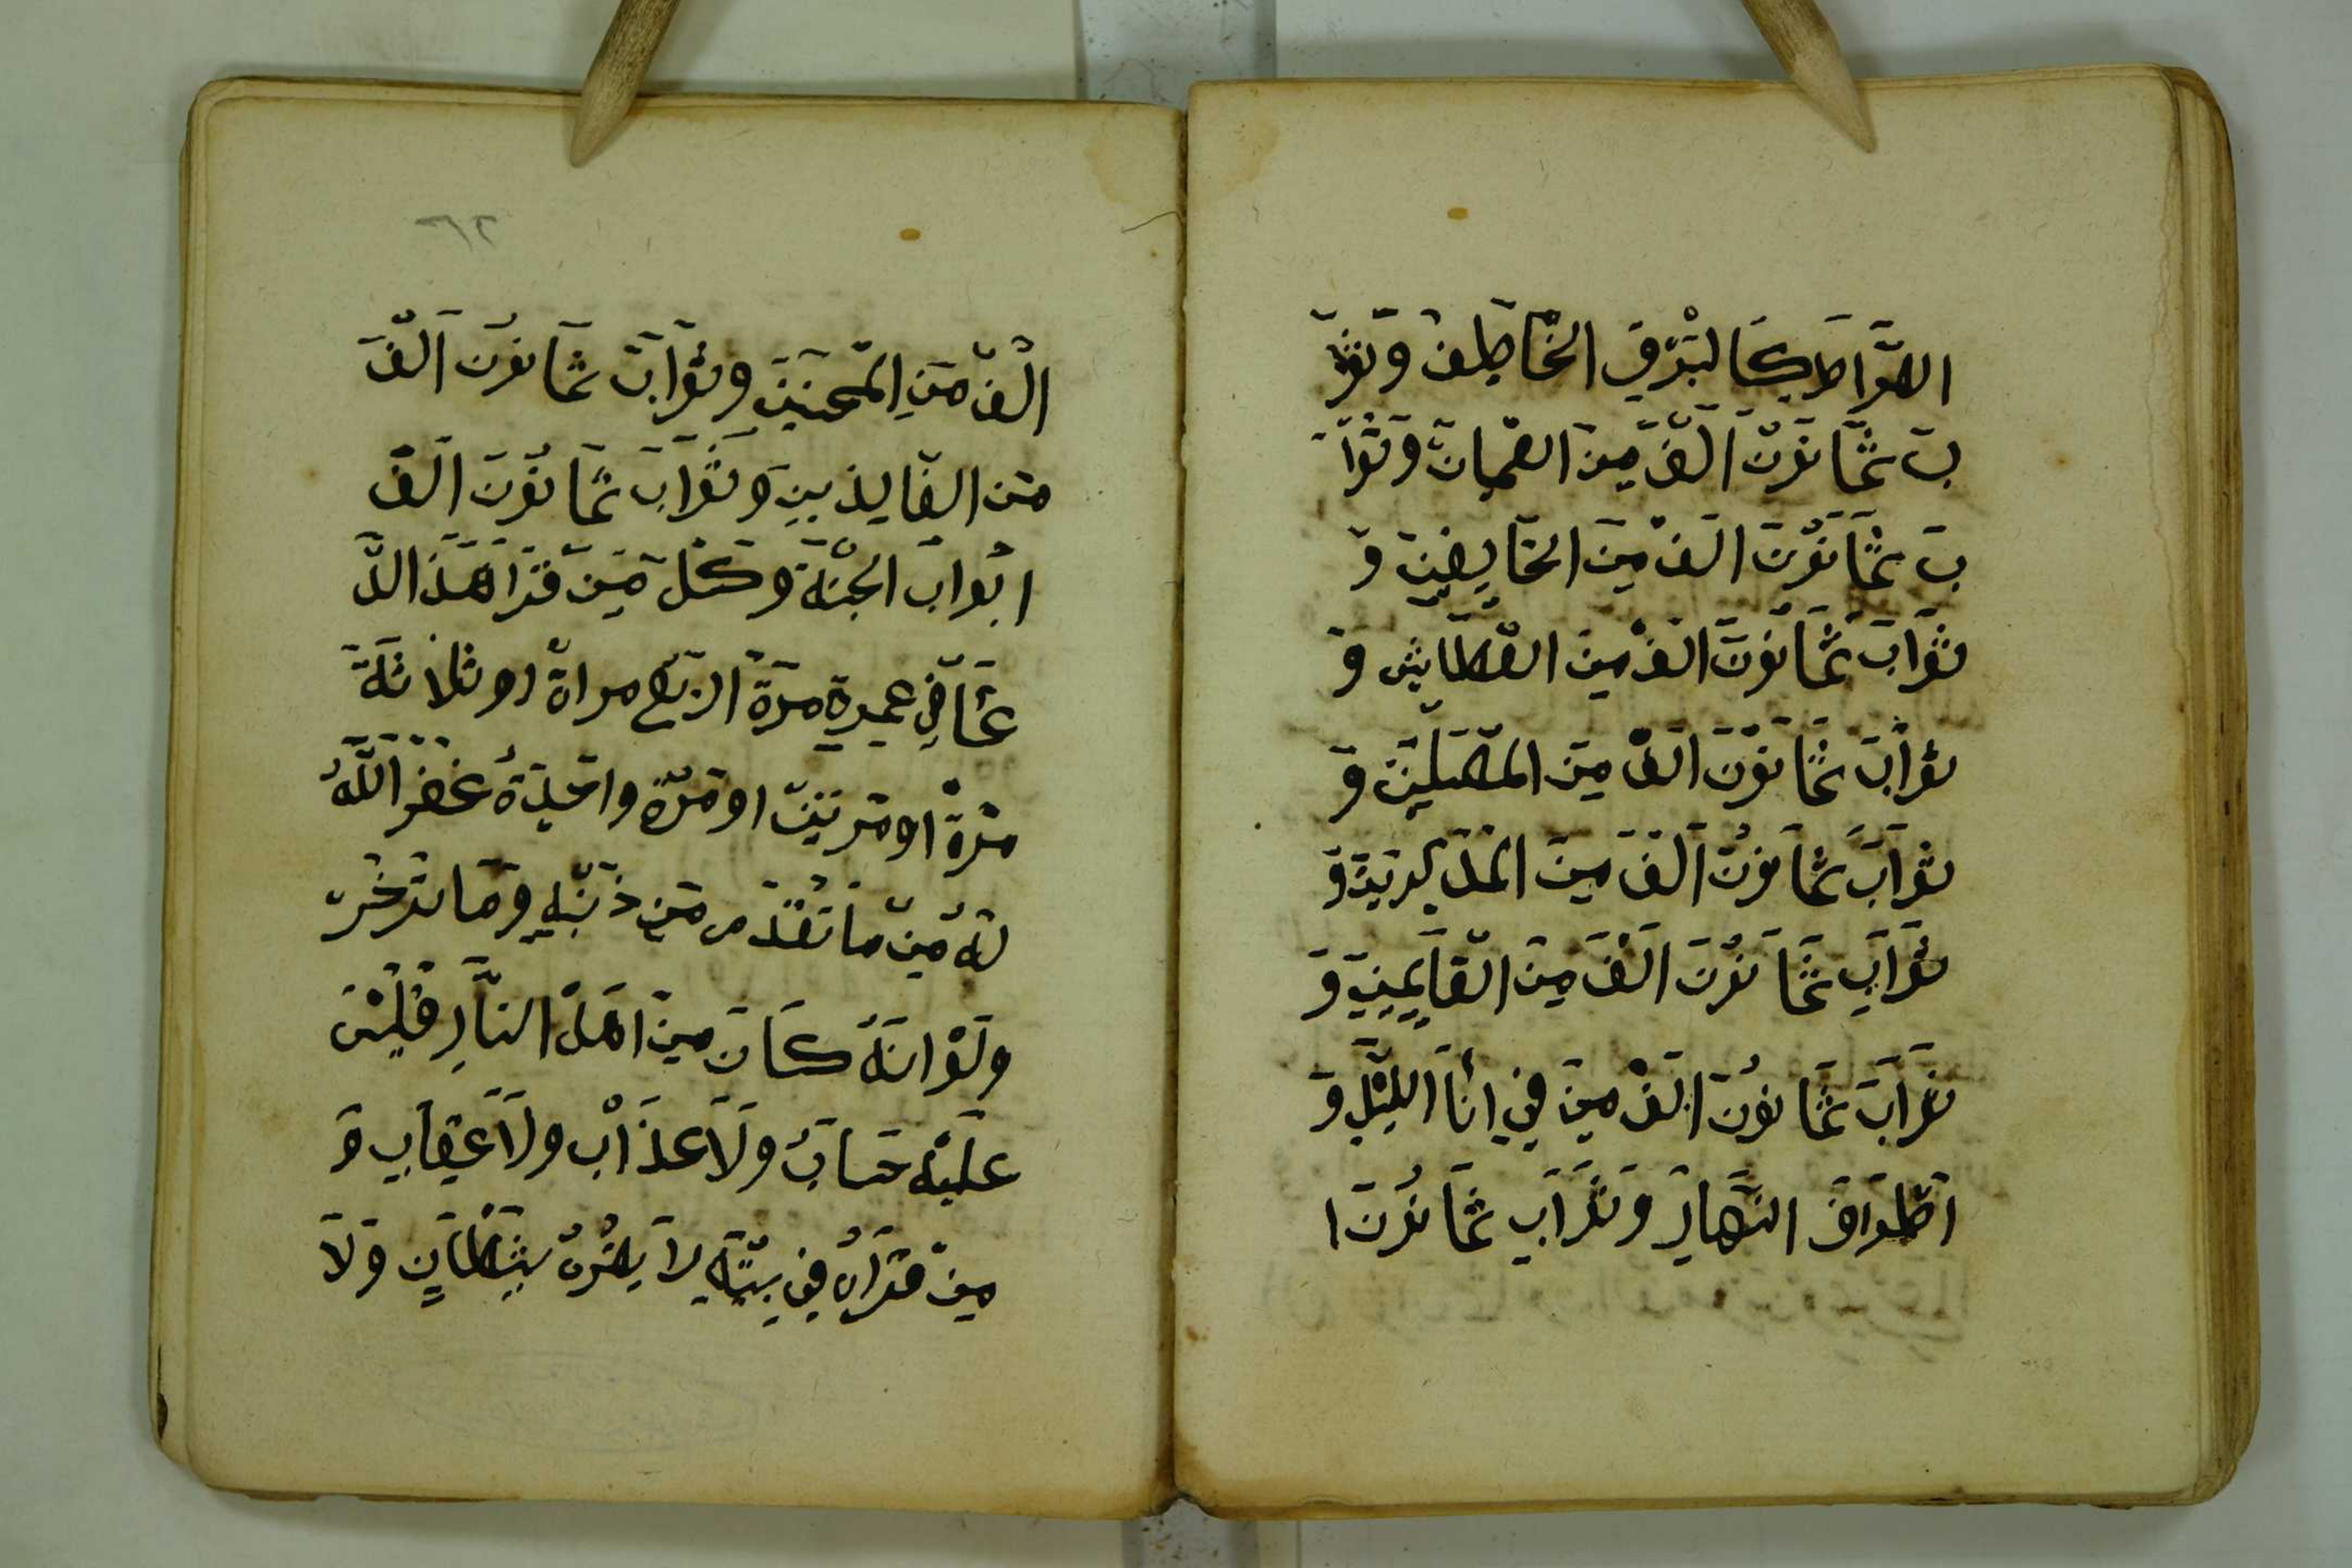 الصّراط كَالبَرْقِ الخَاطِف وَثوَا
بَ ثَمَانُوْنَ الَفْ مِنَ الصّمِانَ وَثوَا
بَ ثَمَانُوْنَ الَفْ مِنَ الخَايِفِينَ وَ
ثَوَابَ ثَمَانُوْنَ الَفْ مِنَ العَطَايش وَ
ثوَابَ ثَمَانُوْنَ الَفْ مِنَ المصَلِينَ وَ
ثوَابَ ثَمَانوُنَ الَفَ مِنَ
ثَوَابِ ثَمَانوُنَ الَفَ مِنَ القَايِمِينَ وَ
ثَوَابَ ثَمَانوُنَ الَفْ مِنَ فِي اَنَا اللَيْلِ وَ
اَطْوَافَ النَهَارِ وَثَوَابِ ثَمَانوُنَ ا
الْفّ مَنِ المحسنِينَ وَثوَابَ ثَمَانوُنَ اَلَفَ
مَن الفَايِذِينِ وَثوَابَ ثَمَانُوْنَ الَفْ
ابْوابَ الجَنّة وَكَلَ مَنِ قَرَا هَذَ الدُّ
عَآ فِي عمِرِهِ مَرَةَ ارْبَع مراة او ثلاثَةَ
مَرةْ او مَرتَينِ او مَرّةِ واحِدَةُ غَفَر اللَّهُ
لَهُ مِنّ ما تَقُدَم مَن ذَنْبِهِ وَمَا
وَلَوْ انَهُ كَانَ مِنَ اهَلْ النَّارِ فَلَيْسَ
عَلَيْهِ حَسابُ وَلاَ عذَابْ وَلاَ عِقابِ وَ
مِنْ قَرَاهُ فِي بيْتَهِ لاَ يضُرْهُ شيطَانٍ وَلاَ